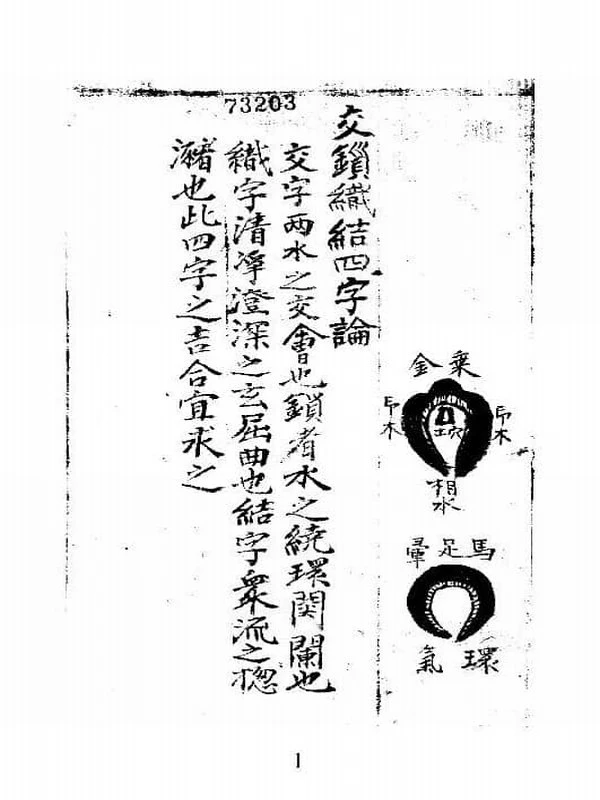 乗金
印木
土穴
印木
相水
馬足暈
環氣
交鎖織結四字論
交字兩水之交會也鎖者水之繞環関闌也
織字清凈澄深之玄屈曲也結字衆流之揔
瀦也此四字之吉合宜求之
73203
1